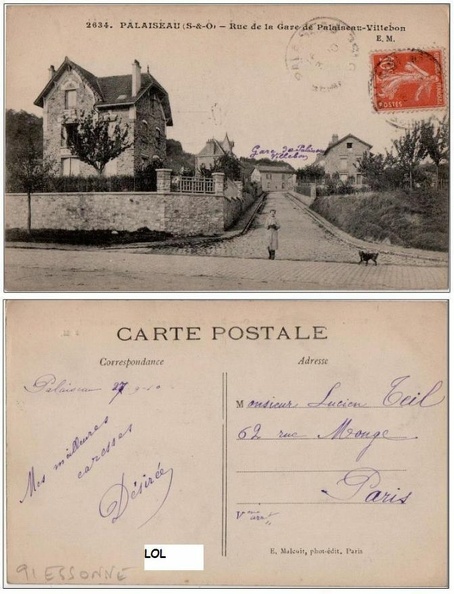 2634. PALAISEAU (S-&-O) - Rue de la Gare de Palaiseau-Villebon
E. M.
10
POSTES
Gare de Palaiseau
Villebon
CARTE POSTALE
Correspondance
Adresse
Palaiseau 27-9-10
Mes meilleures
caresses
Désirée
Monsieur Lucien Teil
62 rue Monge
Paris
V
E. Malcuit, phot-édit. Paris
LOL
91 ESSONNE